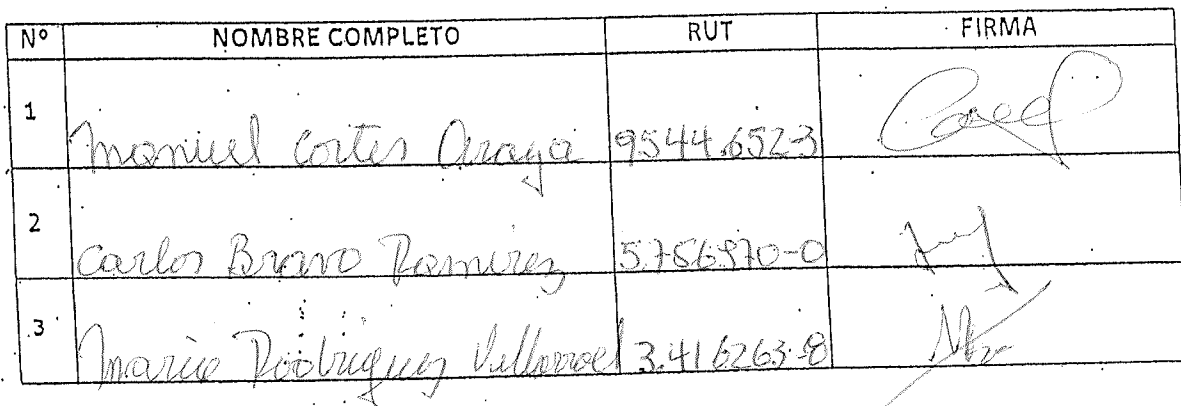 Nº NOMBRE COMPLETO RUT FIRMA
1 Manuel Cortes Araya 9544.652-3
2 Carlos Bravo Ramirez 5.756.970-0
3 Mario Rodriguez Villarroel 3.416263-8